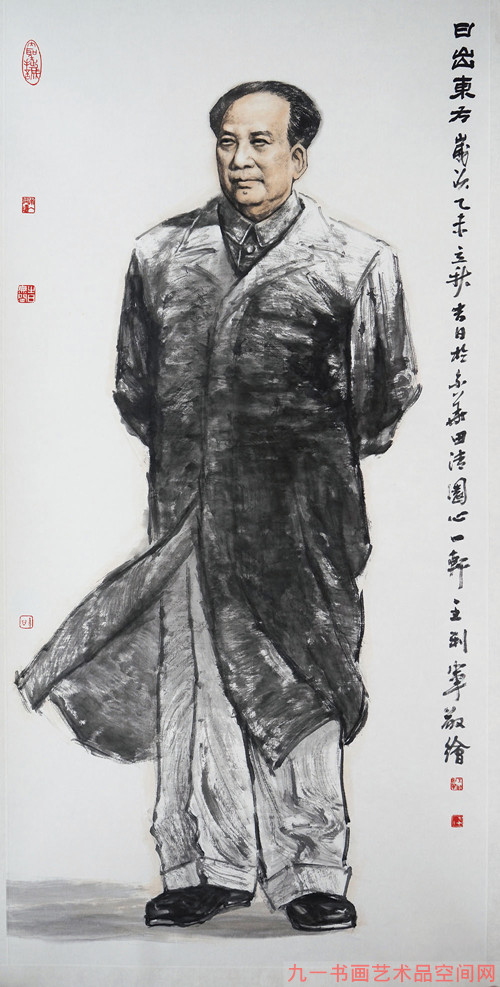 日出東方 歲次乙未立秋吉日於京華田清園心一軒主利軍敬繪
九一书画艺术品空间网